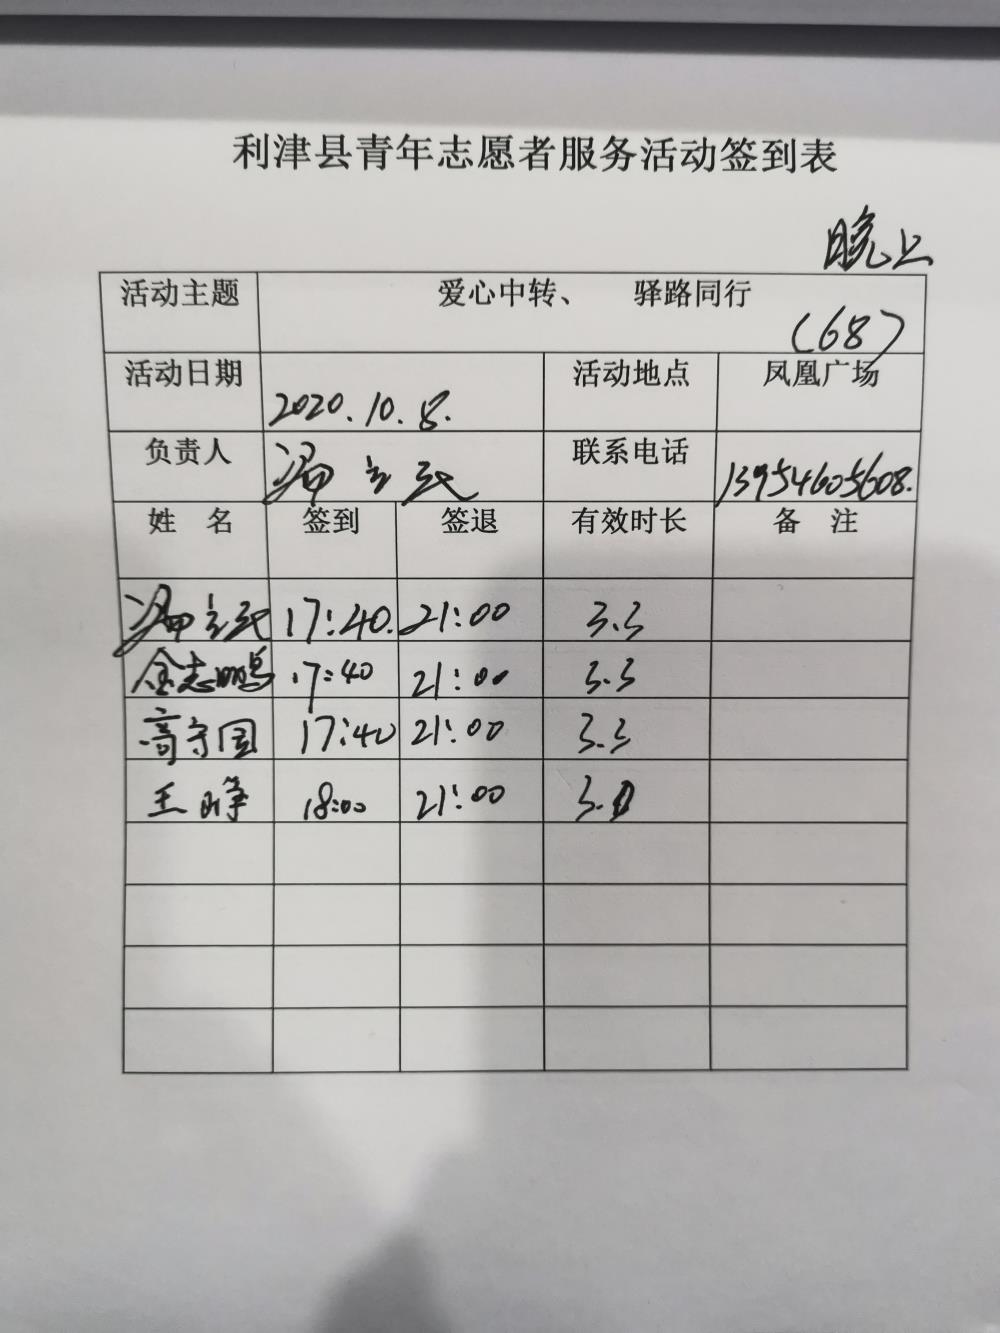 利津县青年志愿者服务活动签到表
晚上
活动主题 爱心中转、 驿路同行
(68)
活动日期 2020.10.8. 活动地点 凤凰广场
负责人 联系电话 13954605608.
姓 名 签到 签退 有效时长 备 注
17:40. 21:00 3.3
金志鹏 17:40 21:00 3.3
高守国 17:40 21:00 3.3
王峥 18:00 21:00 3.0